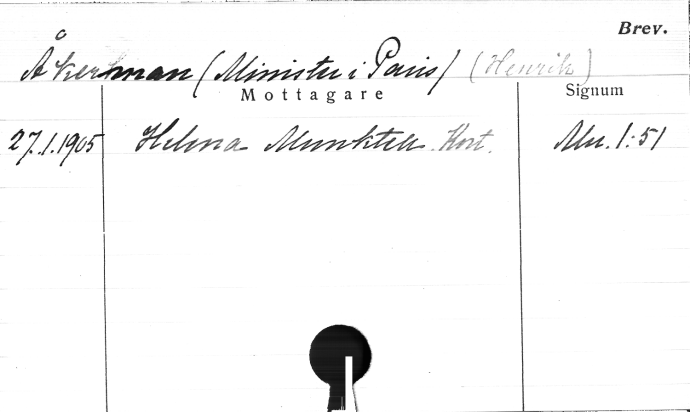 Brev.
Åkerman (Minister i Paris) (Henrik)
Mottagare Signum
27.1.1905 Helena Munktell. Kort. Alu. 1:51